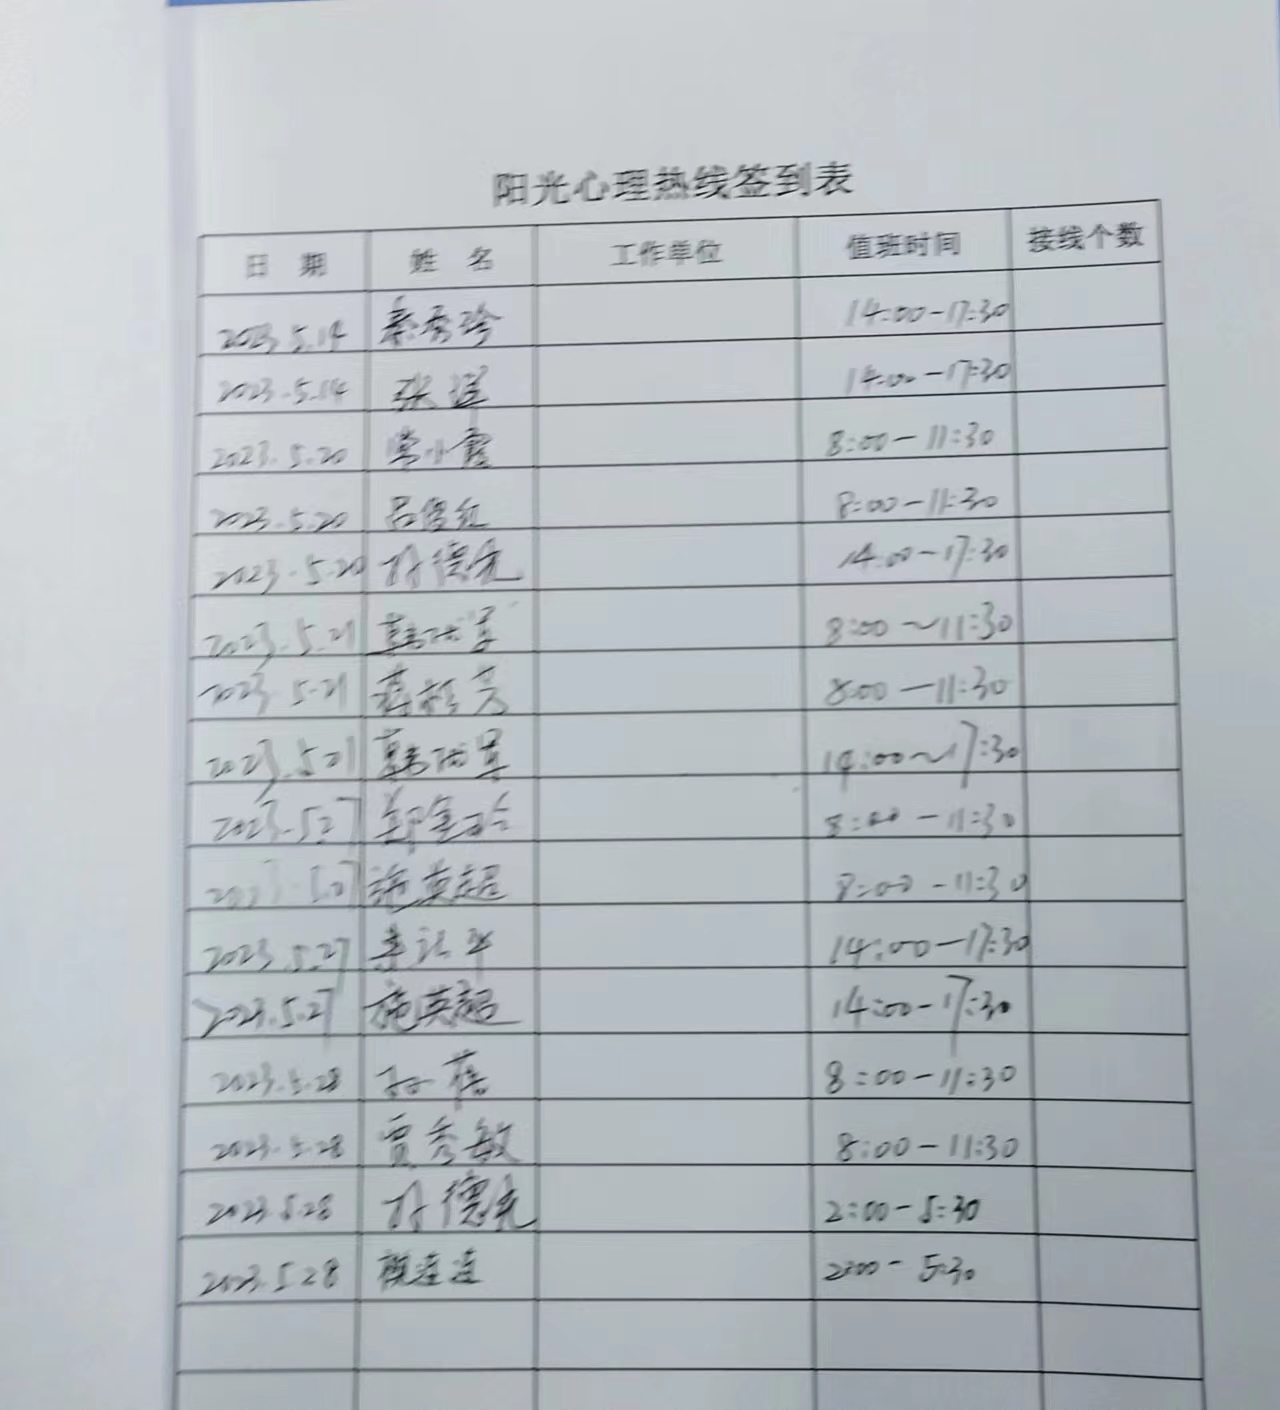 阳光心理热线签到表
日 期 姓 名 工作单位 值班时间 接线个数
2023.5.14 秦秀珍 14:00-17:30
2023.5.14 张 14:00-17:30
2023.5.20 常小霞 8:00-11:30
2023.5.20 吕俊红 8:00-11:30
2023.5.20 孙德先 14:00-17:30
2023.5.21 8:00~11:30
2023.5.21 8:00-11:30
2023.5.21 14:00~17:30
2023.5.27 8:00-11:30
2023.5.27 施英超 8:00-11:30
2023.5.27 14:00-17:30
2023.5.27 施英超 14:00-17:30
2023.5.28 孙蓓 8:00-11:30
2023.5.28 贾秀敏 8:00-11:30
2023.5.28 孙德先 2:00-5:30
2023.5.28 2:00-5:30